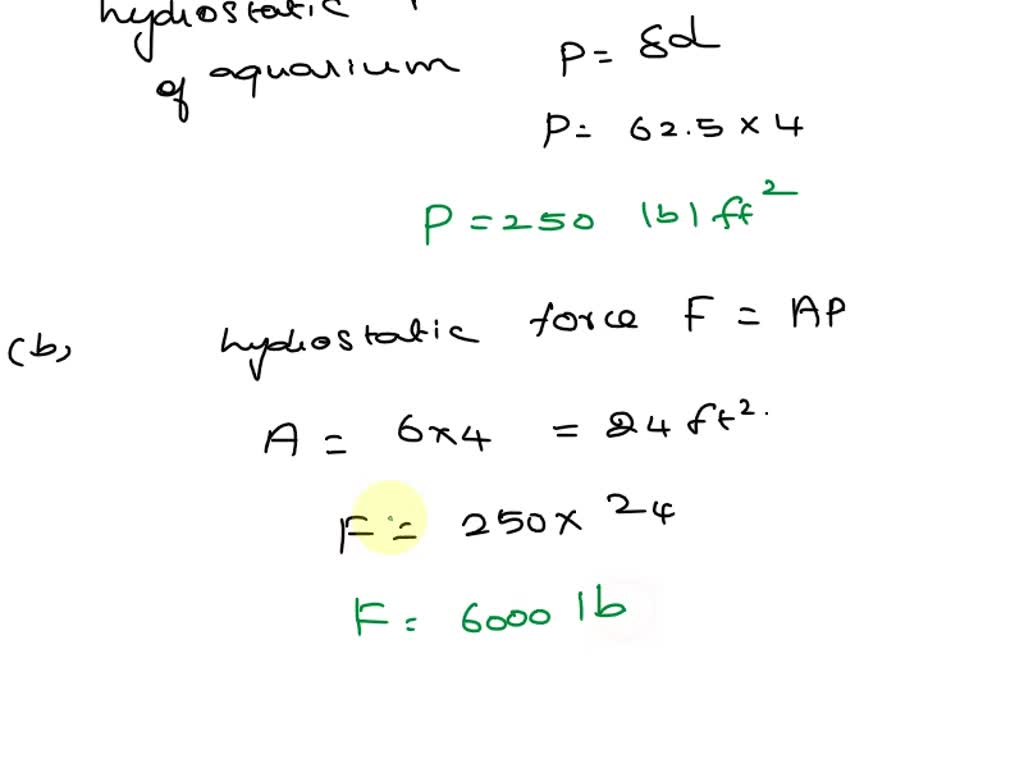 hydrostatic
of aquarium
P = δd
P = 62.5 × 4
P = 250 lb/ft²
(b) hydrostatic force F = AP
A = 6×4 = 24 ft².
F = 250 × 24
F = 6000 lb